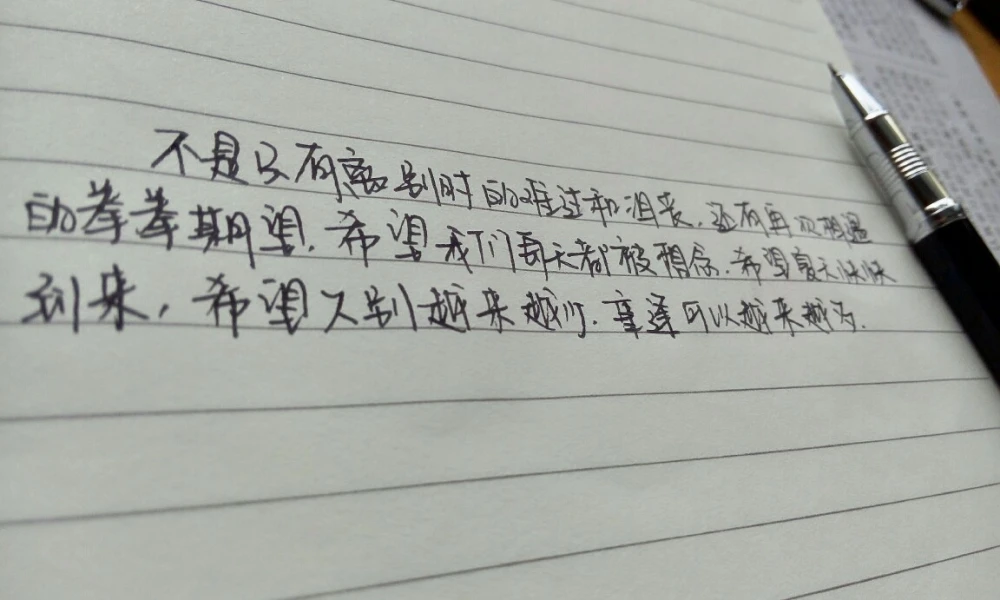 不是只有离别时的难过和沮丧.还有再次相遇
的拳拳期望.希望我们每天都被想念.希望夏天快快
到来,希望久别越来越少.重逢可以越来越多.